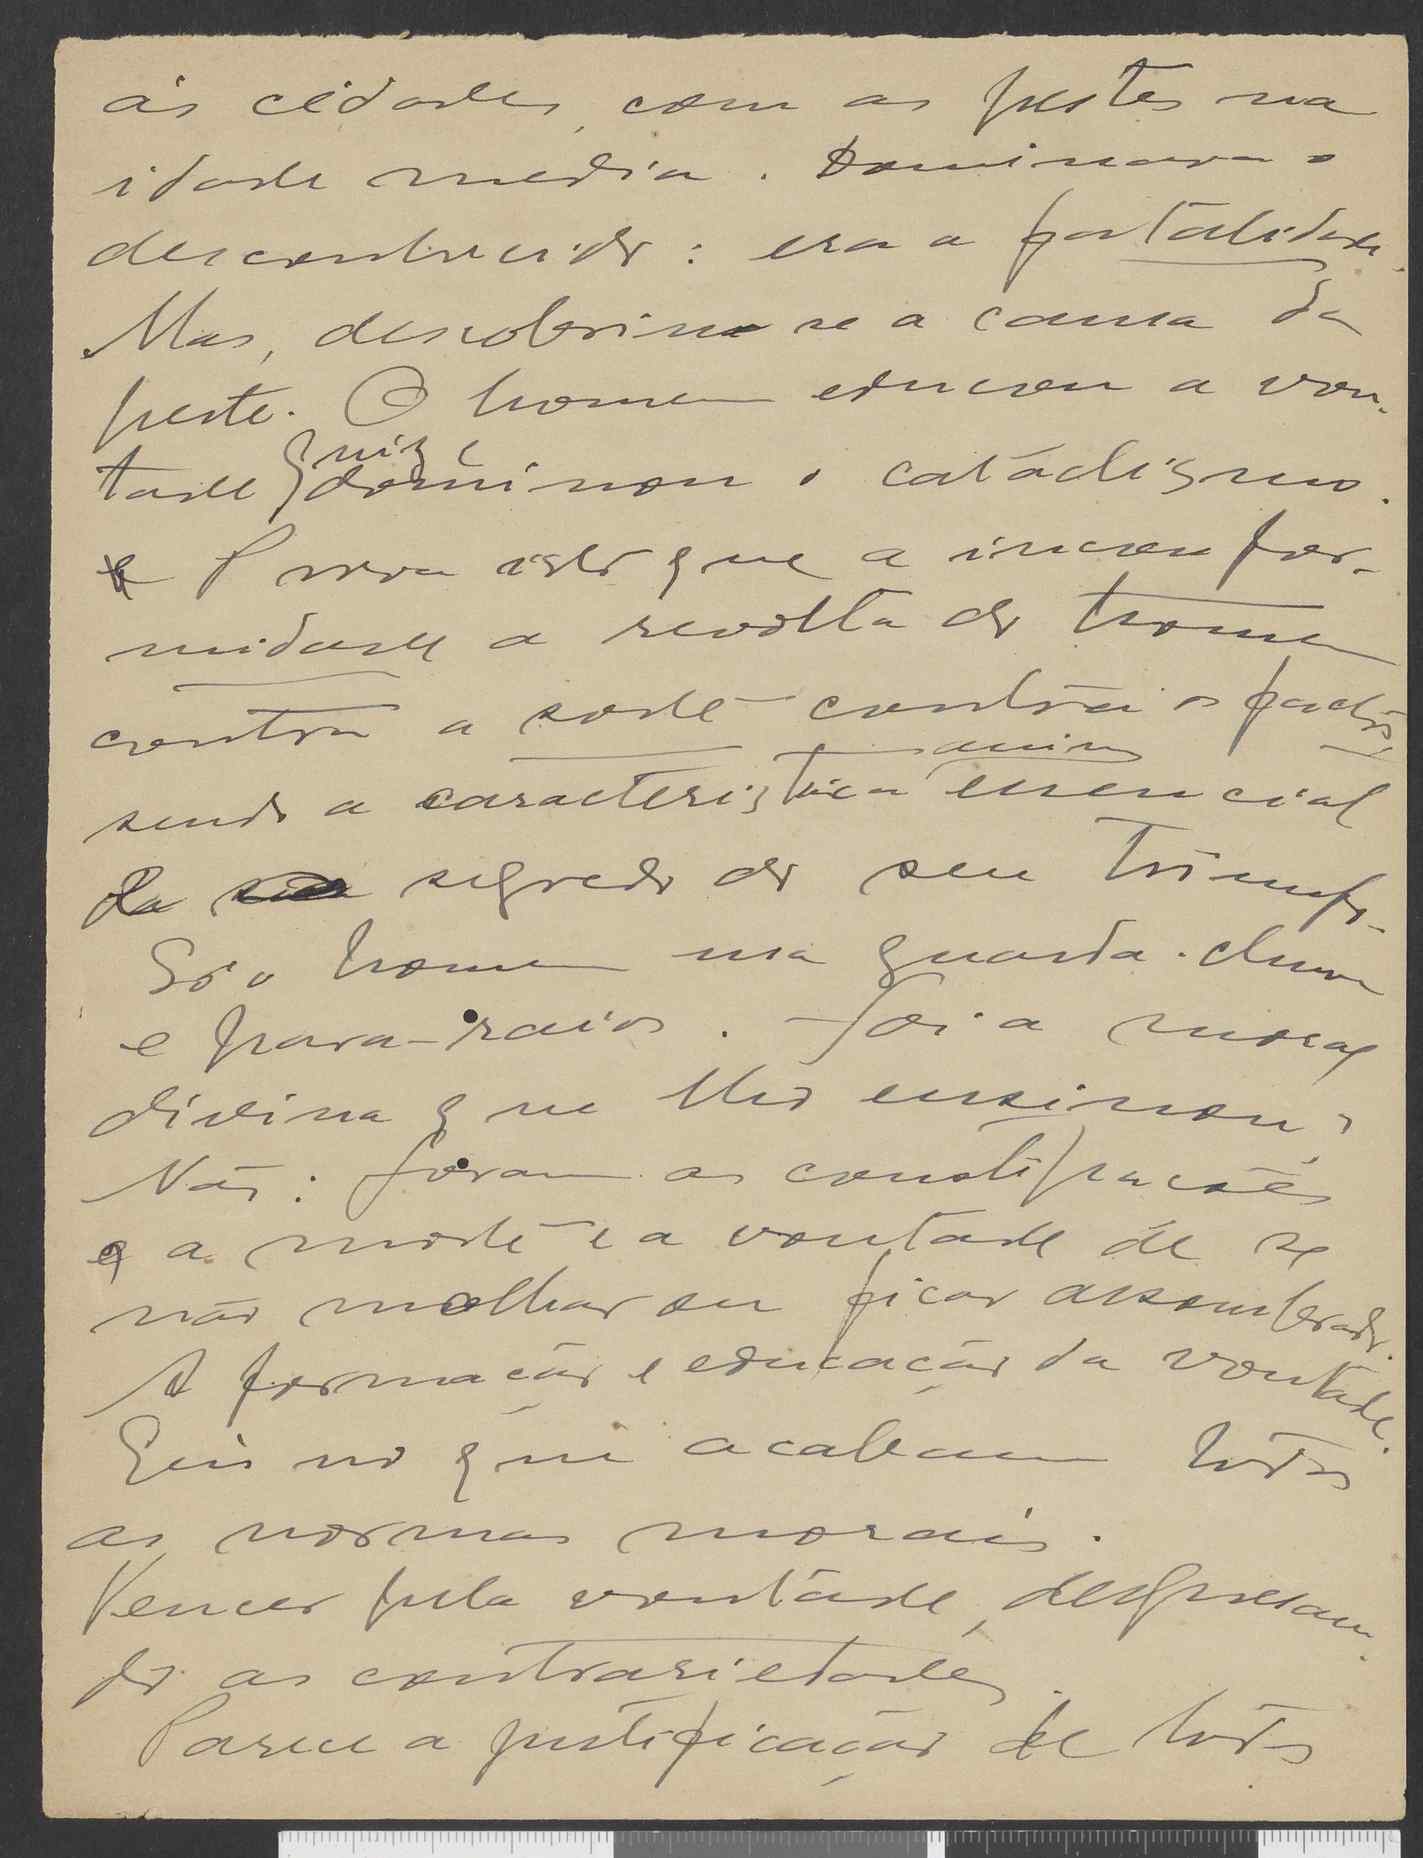 ás cidades, com as pestes na
idade media. Dominava o
desconhecido: era a fatalidade.
Mas, descobriu se a causa da
peste. O homem educou a von-
tade quiz e dominou o cataclismo.
Prova isto que a inconfor-
midade a revolta do homem
contra a sorte contra os factos
sendo a caracteristica mais essencial
da segredo do seu triumfo.
Só o homem usa guarda-chuva
e para-raios. Foi a moral
divina que lhos ensinou?
Não: foram as constipações
e a morte e a vontade de se
não molhar ou ficar assombrado.
A formação e educação da vontade.
Eis no que acabam todas
as normas morais.
Vencer pela vontade, despresan-
do as contrariedades.
Parece a justificação de todos